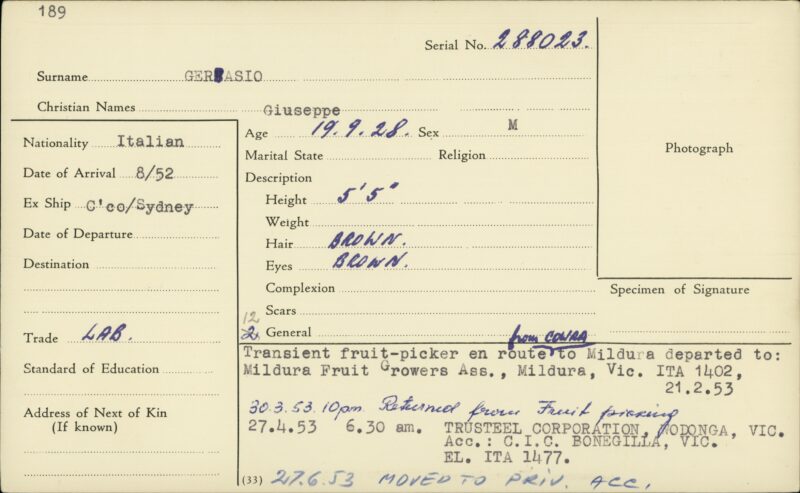 189
Serial No. 288023.
Surname GERVASIO
Christian Names Giuseppe
Nationality Italian
Date of Arrival 8/52
Ex Ship C'co/Sydney
Date of Departure
Destination
Trade LAB.
Standard of Education
Address of Next of Kin
(If known)
Age 19.9.28. Sex M
Marital State Religion
Description
Height 5'5"
Weight
Hair BROWN.
Eyes BROWN.
Complexion
Scars
12
2 General
Photograph
Specimen of Signature
from COWRA
Transient fruit-picker en route to Mildura departed to:
Mildura Fruit Growers Ass., Mildura, Vic. ITA 1402,
21.2.53
30.3.53. 10pm. Returned from Fruit picking
27.4.53 6.30 am. TRUSTEEL CORPORATION, WODONGA, VIC.
Acc.: C.I.C. BONEGILLA, VIC.
EL. ITA 1477.
(33) 27.6.53 MOVED TO PRIV. ACC.